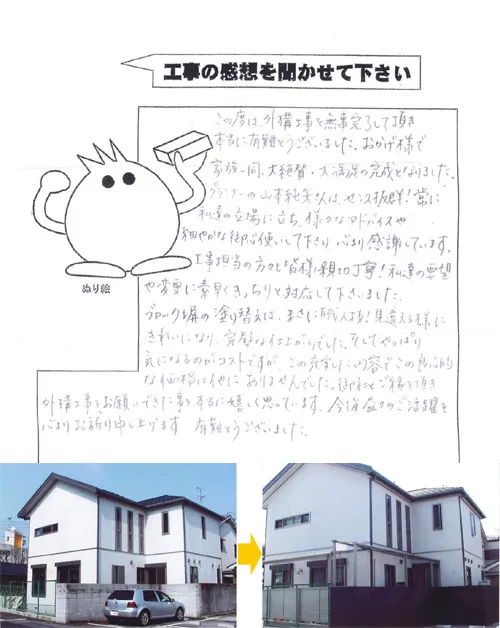 工事の感想を聞かせて下さい
この度は、外構工事を無事完了して頂き
本当に有難とうございました。おかげ様で
家族一同、大絶賛・大満足の完成となりました。
プランナーの山本純矢さんは、センス抜群!常に
私達の立場に立ち、様々なアドバイスや
細やかな御心使いして下さり、心より感謝しています。
工事担当の方々も皆様親切丁寧!私達の要望
や変更に素早くきっちりと対応して下さいました。
ブロック塀の塗り替えは、まさに職人技!見違える様に
きれいになり、完璧な仕上がりでした。そしてやっぱり
気になるのがコストですが、この充実した内容でこの良心的
な価格は他にありませんでした。御社とご縁を頂き
外構工事をお願いできた事を本当に嬉しく思っています。今後益々のご活躍を
心よりお祈り申し上げます 有難とうございました。
ぬり絵